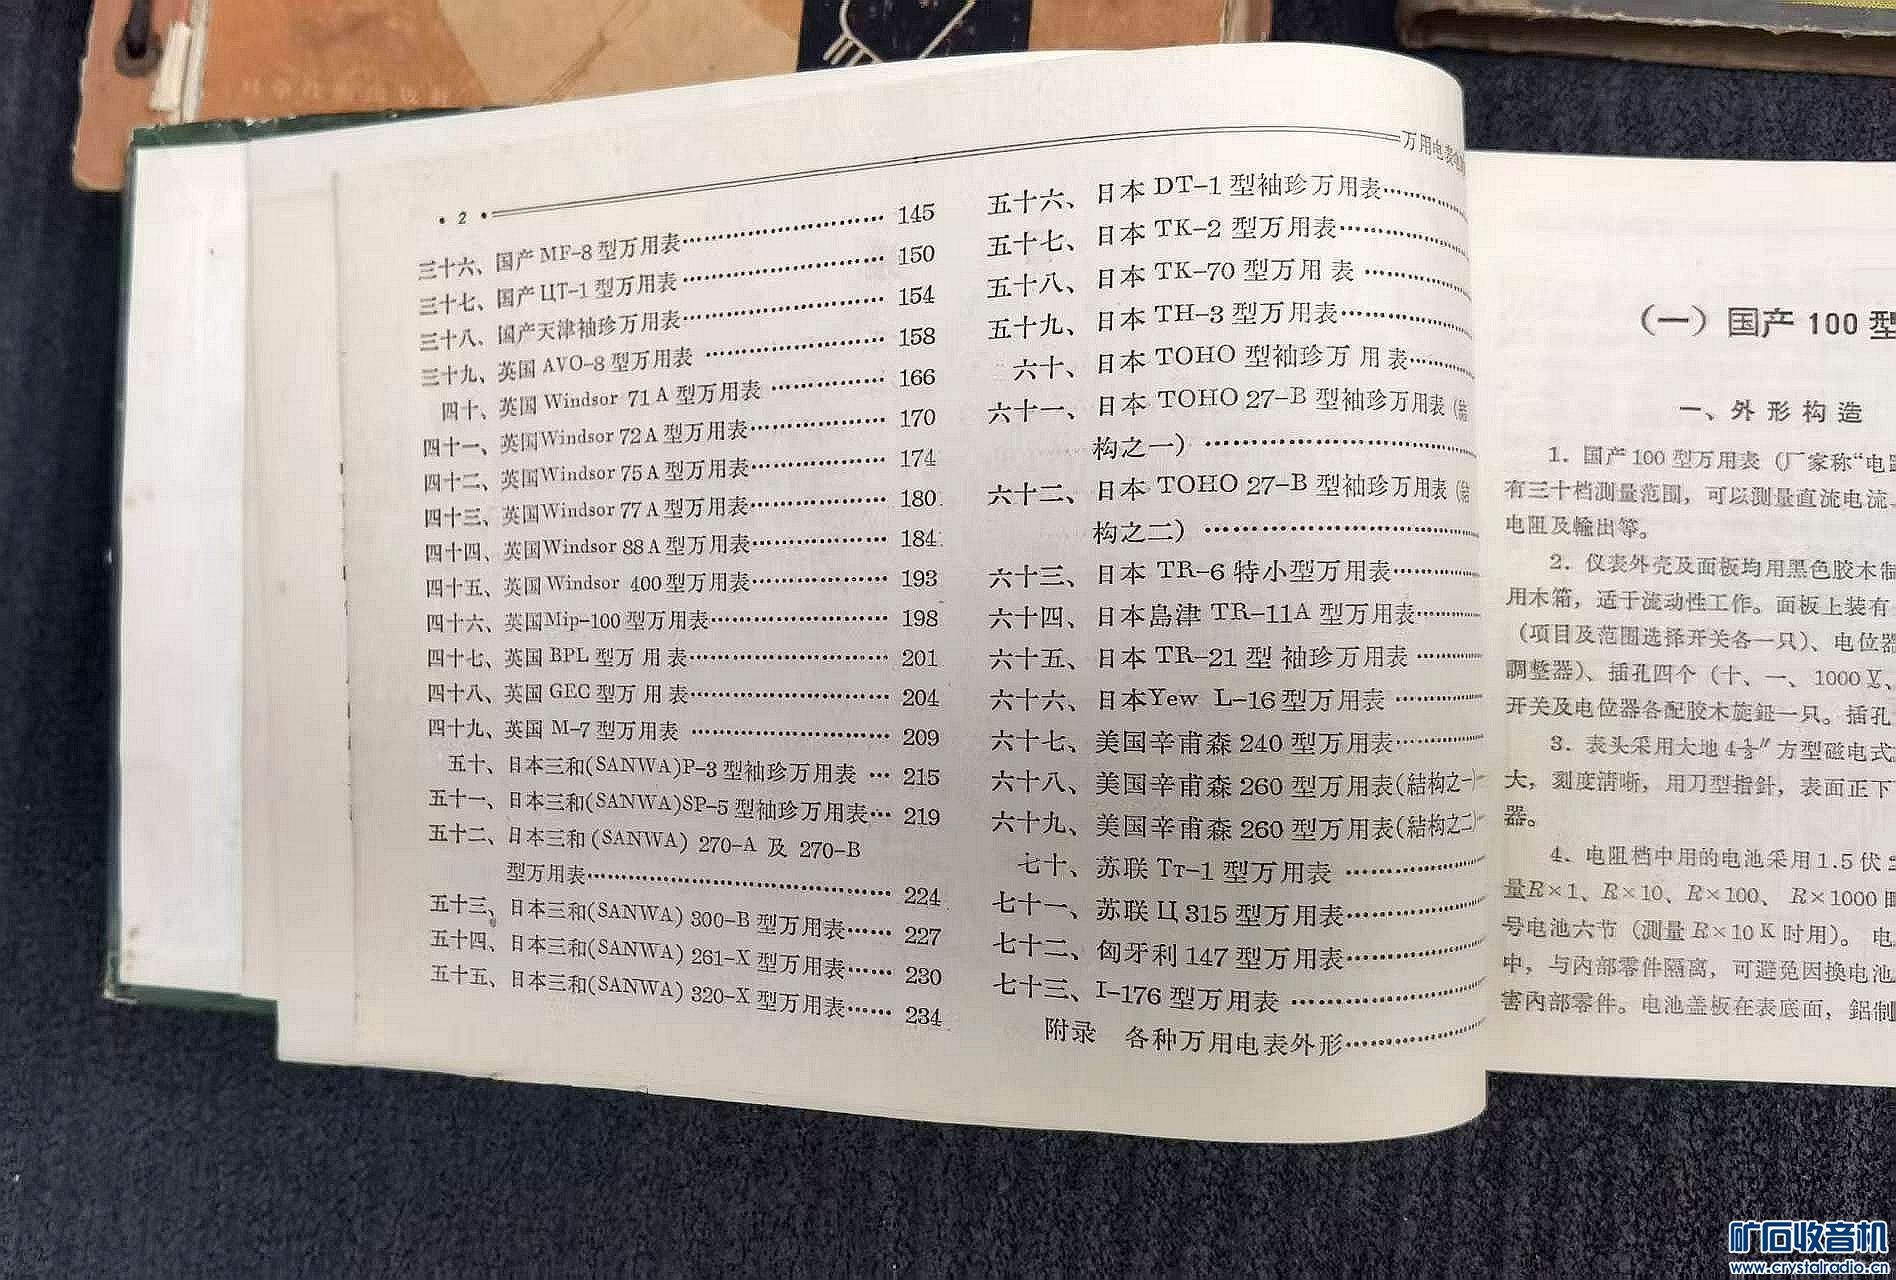 • 2 •
万用电表
三十六、国产 MF-8 型万用表 145
三十七、国产 ЦТ-1 型万用表 150
三十八、国产天津袖珍万用表 154
三十九、英国 AVO-8 型万用表 158
四十、英国 Windsor 71A 型万用表 166
四十一、英国 Windsor 72A 型万用表 170
四十二、英国 Windsor 75A 型万用表 174
四十三、英国 Windsor 77A 型万用表 180
四十四、英国 Windsor 88A 型万用表 184
四十五、英国 Windsor 400 型万用表 193
四十六、英国 Mip-100 型万用表 198
四十七、英国 BPL 型万用表 201
四十八、英国 GEC 型万用表 204
四十九、英国 M-7 型万用表 209
五十、日本三和(SANWA)P-3 型袖珍万用表 215
五十一、日本三和(SANWA)SP-5 型袖珍万用表 219
五十二、日本三和(SANWA) 270-A 及 270-B
型万用表 224
五十三、日本三和(SANWA) 300-B 型万用表 227
五十四、日本三和(SANWA) 261-X 型万用表 230
五十五、日本三和(SANWA) 320-X 型万用表 234
五十六、日本 DT-1 型袖珍万用表
五十七、日本 TK-2 型万用表
五十八、日本 TK-70 型万用表
五十九、日本 TH-3 型万用表
六十、日本 TOHO 型袖珍万用表
六十一、日本 TOHO 27-B 型袖珍万用表(結
构之一)
六十二、日本 TOHO 27-B 型袖珍万用表(結
构之二)
六十三、日本 TR-6 特小型万用表
六十四、日本島津 TR-11A 型万用表
六十五、日本 TR-21 型袖珍万用表
六十六、日本 Yew L-16 型万用表
六十七、美国辛甫森 240 型万用表
六十八、美国辛甫森 260 型万用表(結构之一)
六十九、美国辛甫森 260 型万用表(結构之二)
七十、苏联 Тт-1 型万用表
七十一、苏联 Ц 315 型万用表
七十二、匈牙利 147 型万用表
七十三、I-176 型万用表
附录 各种万用电表外形
(一) 国产 100 型
一、外形构造
1. 国产 100 型万用表 (厂家称“电
有三十档測量范围, 可以測量直流电流、
电阻及輸出等。
2. 仪表外壳及面板均用黑色胶木制
用木箱, 适于流动性工作。面板上装有
(项目及范围选择开关各一只)、电位器
調整器)、插孔四个 (十、一、1000 V、
开关及电位器各配胶木旋鈕一只。插孔
3. 表头采用大地 4½″ 方型磁电式
大, 刻度清晰, 用刀型指針, 表面正下
器。
4. 电阻档中用的电池采用 1.5 伏
量 R×1、R×10、R×100、R×1000 时
号电池六节 (測量 R×10 K 时用)。电
中, 与內部零件隔离, 可避免因換电池
害內部零件。电池盖板在表底面, 鋁制
矿石收音机
www.crystalradio.cn